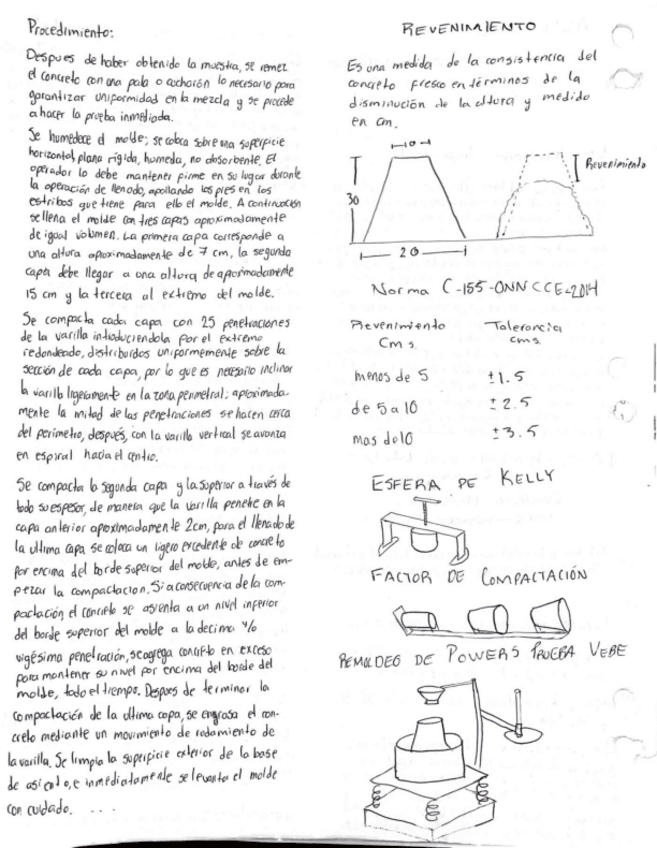 Procedimiento:
Despues de haber obtenido la muestra, se remez
el concreto con una pala o cucharón lo necesario para
garantizar uniformidad en la mezcla y se procede
a hacer la prueba inmediata.
Se humedece el molde; se coloca sobre una superficie
horizontal, plana rígida, humeda, no absorbente. El
operador lo debe mantener firme en su lugar durante
la operación de llenado, apollando los pies en los
estribos que tiene para ello el molde. A continuación
se llena el molde con tres capas aproximadamente
de igual volumen. La primera capa corresponde a
una altura aproximadamente de 7 cm, la segunda
capa debe llegar a una altura de aproximadamente
15 cm y la tercera al extremo del molde.
Se compacta cada capa con 25 penetraciones
de la varilla introduciendola por el extremo
redondeado, distribuidos uniformemente sobre la
sección de cada capa, por lo que es necesario inclinar
la varilla ligeramente en la zona perimetral; aproximada-
mente la mitad de las penetraciones se hacen cerca
del perimetro, después, con la varilla vertical se avanza
en espiral hacia el centro.
Se compacta la segunda capa y la superior a través de
todo su espesor, de manera que la varilla penetre en la
capa anterior aproximadamente 2cm, para el llenado de
la ultima capa se coloca un ligero excedente de concreto
por encima del borde superior del molde, antes de em-
pezar la compactacion. Si a consecuencia de la com-
pactación el concreto se asienta a un nivel inferior
del borde superior del molde a la decima y/o
vigésima penetración, se agrega concreto en exceso
para mantener su nivel por encima del borde del
molde, todo el tiempo. Despues de terminar la
compactación de la ultima capa, se engrasa el con-
creto mediante un movimiento de rodamiento de
la varilla. Se limpia la superficie exterior de la base
de asiento, e inmediatamente se levanta el molde
con cuidado. . . .
REVENIMIENTO
Es una medida de la consistencia del
concreto fresco en términos de la
disminución de la altura y medido
en cm.
10
Revenimiento
30
20
Norma C-155-ONNCCE-2014
Revenimiento Tolerancia
Cms. cms.
menos de 5 ±1.5
de 5 a 10 ±2.5
mas de 10 ±3.5
ESFERA DE KELLY
FACTOR DE COMPACTACIÓN
REMOLDEO DE POWERS PRUEBA VEBE